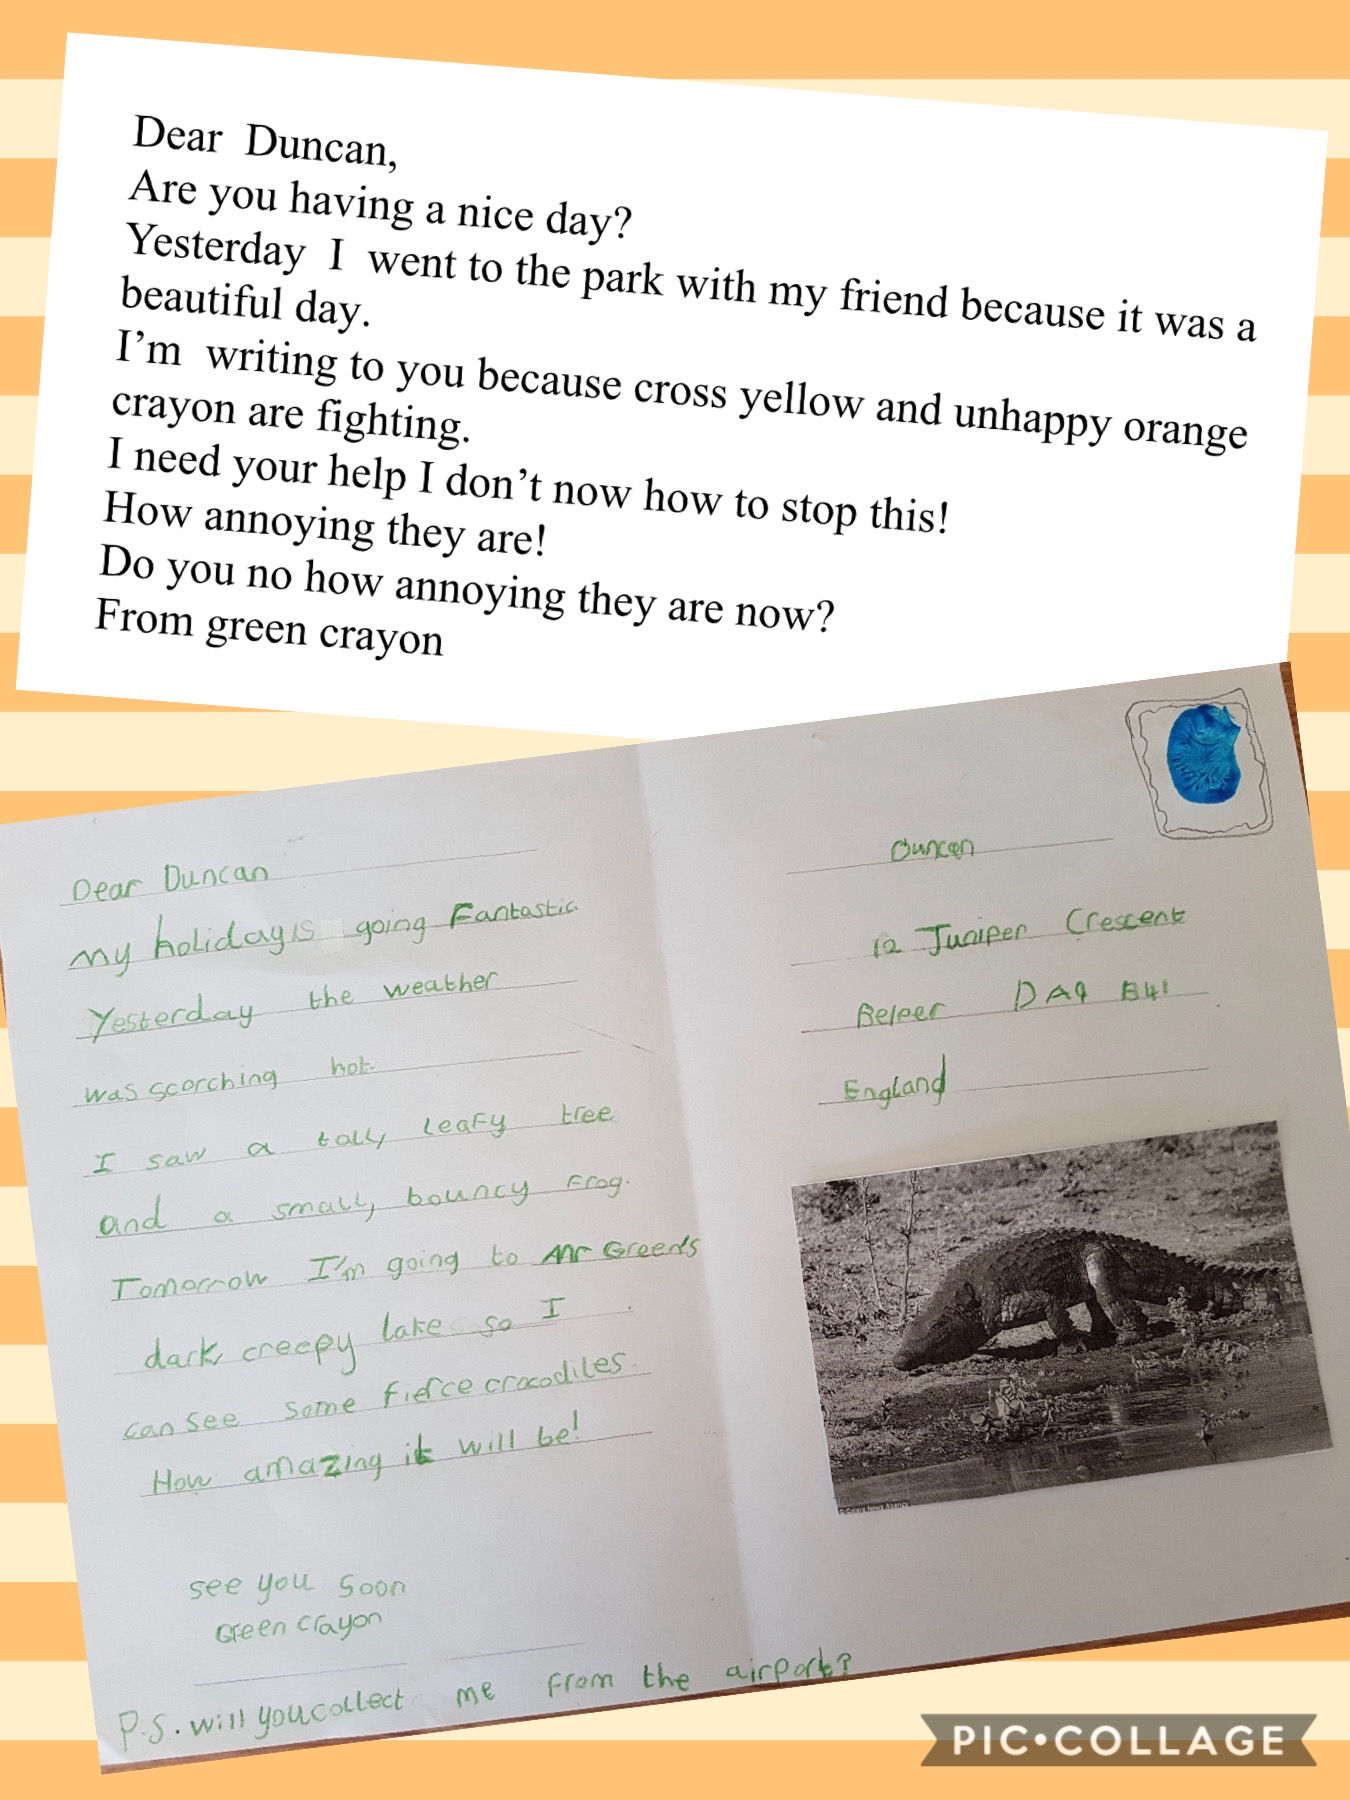 Dear Duncan,
Are you having a nice day?
Yesterday I went to the park with my friend because it was a
beautiful day.
I'm writing to you because cross yellow and unhappy orange
crayon are fighting.
I need your help I don't now how to stop this!
How annoying they are!
Do you no how annoying they are now?
From green crayon
Dear Duncan
my holiday is going Fantastic
Yesterday the weather
was scorching hot.
I saw a tall, leafy tree
and a small, bouncy frog.
Tomorrow I'm going to Mr Green's
dark, creepy lake so I
can see some fierce crocodiles.
How amazing it will be!
see you soon
Green crayon
P.S. will you collect me from the airport?
Duncan
12 Juniper Crescent
DA9
England
PIC•COLLAGE